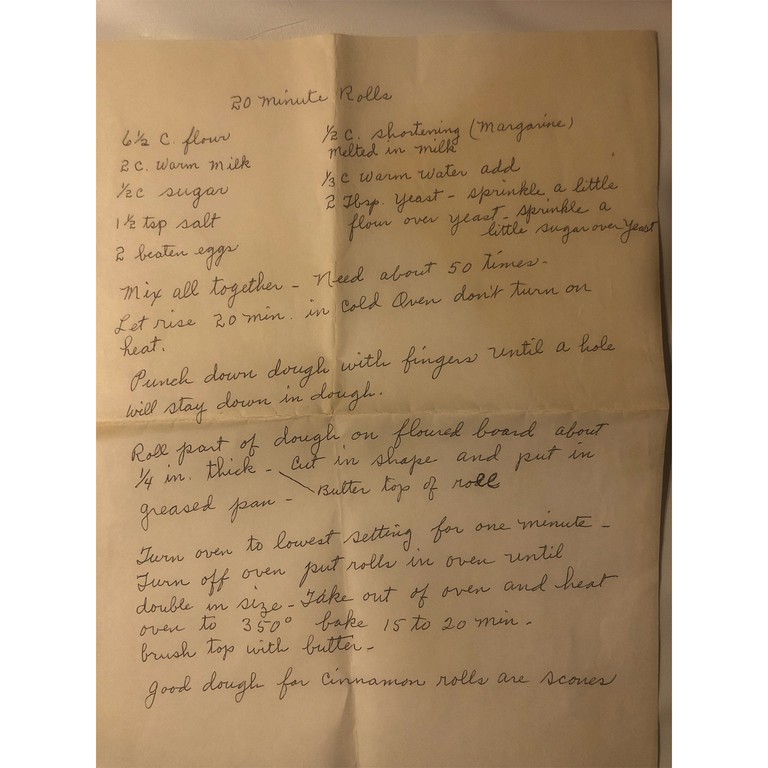 20 minute Rolls
6½ C. flour
2 C. Warm Milk
½ C sugar
1½ tsp salt
2 beaten eggs
½ C. shortening (Margarine)
melted in milk
⅓ C Warm Water add
2 Tbsp. Yeast - sprinkle a little
flour over yeast - sprinkle a
little sugar over Yeast
Mix all together - Need about 50 times -
Let rise 20 min. in Cold Oven don't turn on
heat.
Punch down dough with fingers until a hole
will stay down in dough.
Roll part of dough on floured board about
¼ in. thick - Cut in shape and put in
greased pan - Butter top of roll
Turn oven to lowest setting for one minute -
Turn off oven put rolls in oven until
double in size - Take out of oven and heat
oven to 350° bake 15 to 20 min -
brush top with butter -
good dough for Cinnamon rolls are scones